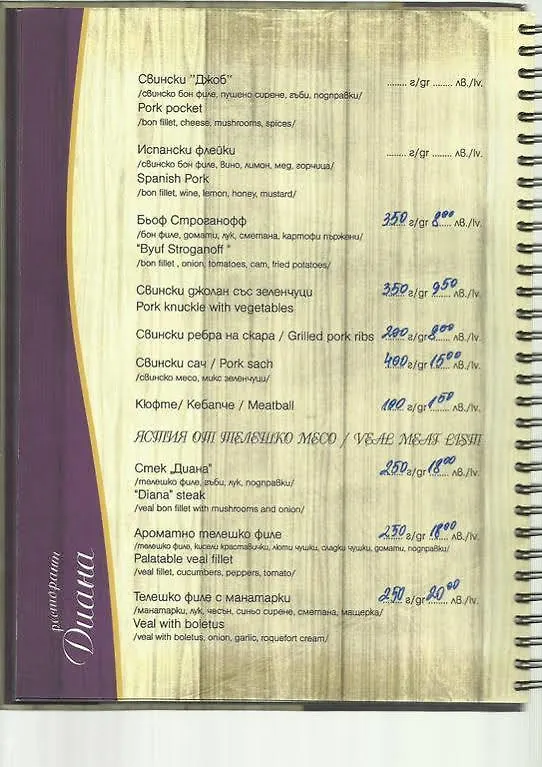 Свински "Джоб" ........ г/gr ........ лв./lv.
/свинско бон филе, пушено сирене, гъби, подправки/
Pork pocket
/bon fillet, cheese, mushrooms, spices/
Испански флейки ........ г/gr ........ лв./lv.
/свинско бон филе, вино, лимон, мед, горчица/
Spanish Pork
/bon fillet, wine, lemon, honey, mustard/
Бьоф Строганофф 350 г/gr 8.00 лв./lv.
/бон филе, домати, лук, сметана, картофи пържени/
"Byuf Stroganoff "
/bon fillet , onion, tomatoes, cam, fried potatoes/
Свински джолан със зеленчуци 350 г/gr 9.50 лв./lv.
Pork knuckle with vegetables
Свински ребра на скара / Grilled pork ribs 200 г/gr 8.00 лв./lv.
Свински сач / Pork sach 400 г/gr 15.00 лв./lv.
/свинско месо, микс зеленчуци/
Кюфте/ Кебапче / Meatball 100 г/gr 1.50 лв./lv.
ЯСТИЯ ОТ ТЕЛЕШКО МЕСО / VEAL MEAT LIST
Стек „Диана" 250 г/gr 18.00 лв./lv.
/телешко филе, гъби, лук, подправки/
"Diana" steak
/veal bon fillet with mushrooms and onion/
Ароматно телешко филе 250 г/gr 18.00 лв./lv.
/телешко филе, кисели краставички, люти чушки, сладки чушки, домати, подправки/
Palatable veal fillet
/veal fillet, cucumbers, peppers, tomato/
Телешко филе с манатарки 250 г/gr 20.00 лв./lv.
/манатарки, лук, чесън, синьо сирене, сметана, мащерка/
Veal with boletus
/veal with boletus, onion, garlic, roquefort cream/
ресторанти
Диана